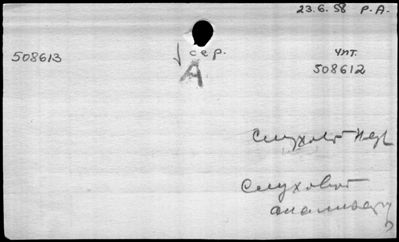 23.6.58 Р.А.
508613
сер.
А
чит.
508612
Слуховой
Слуховой
анализатор